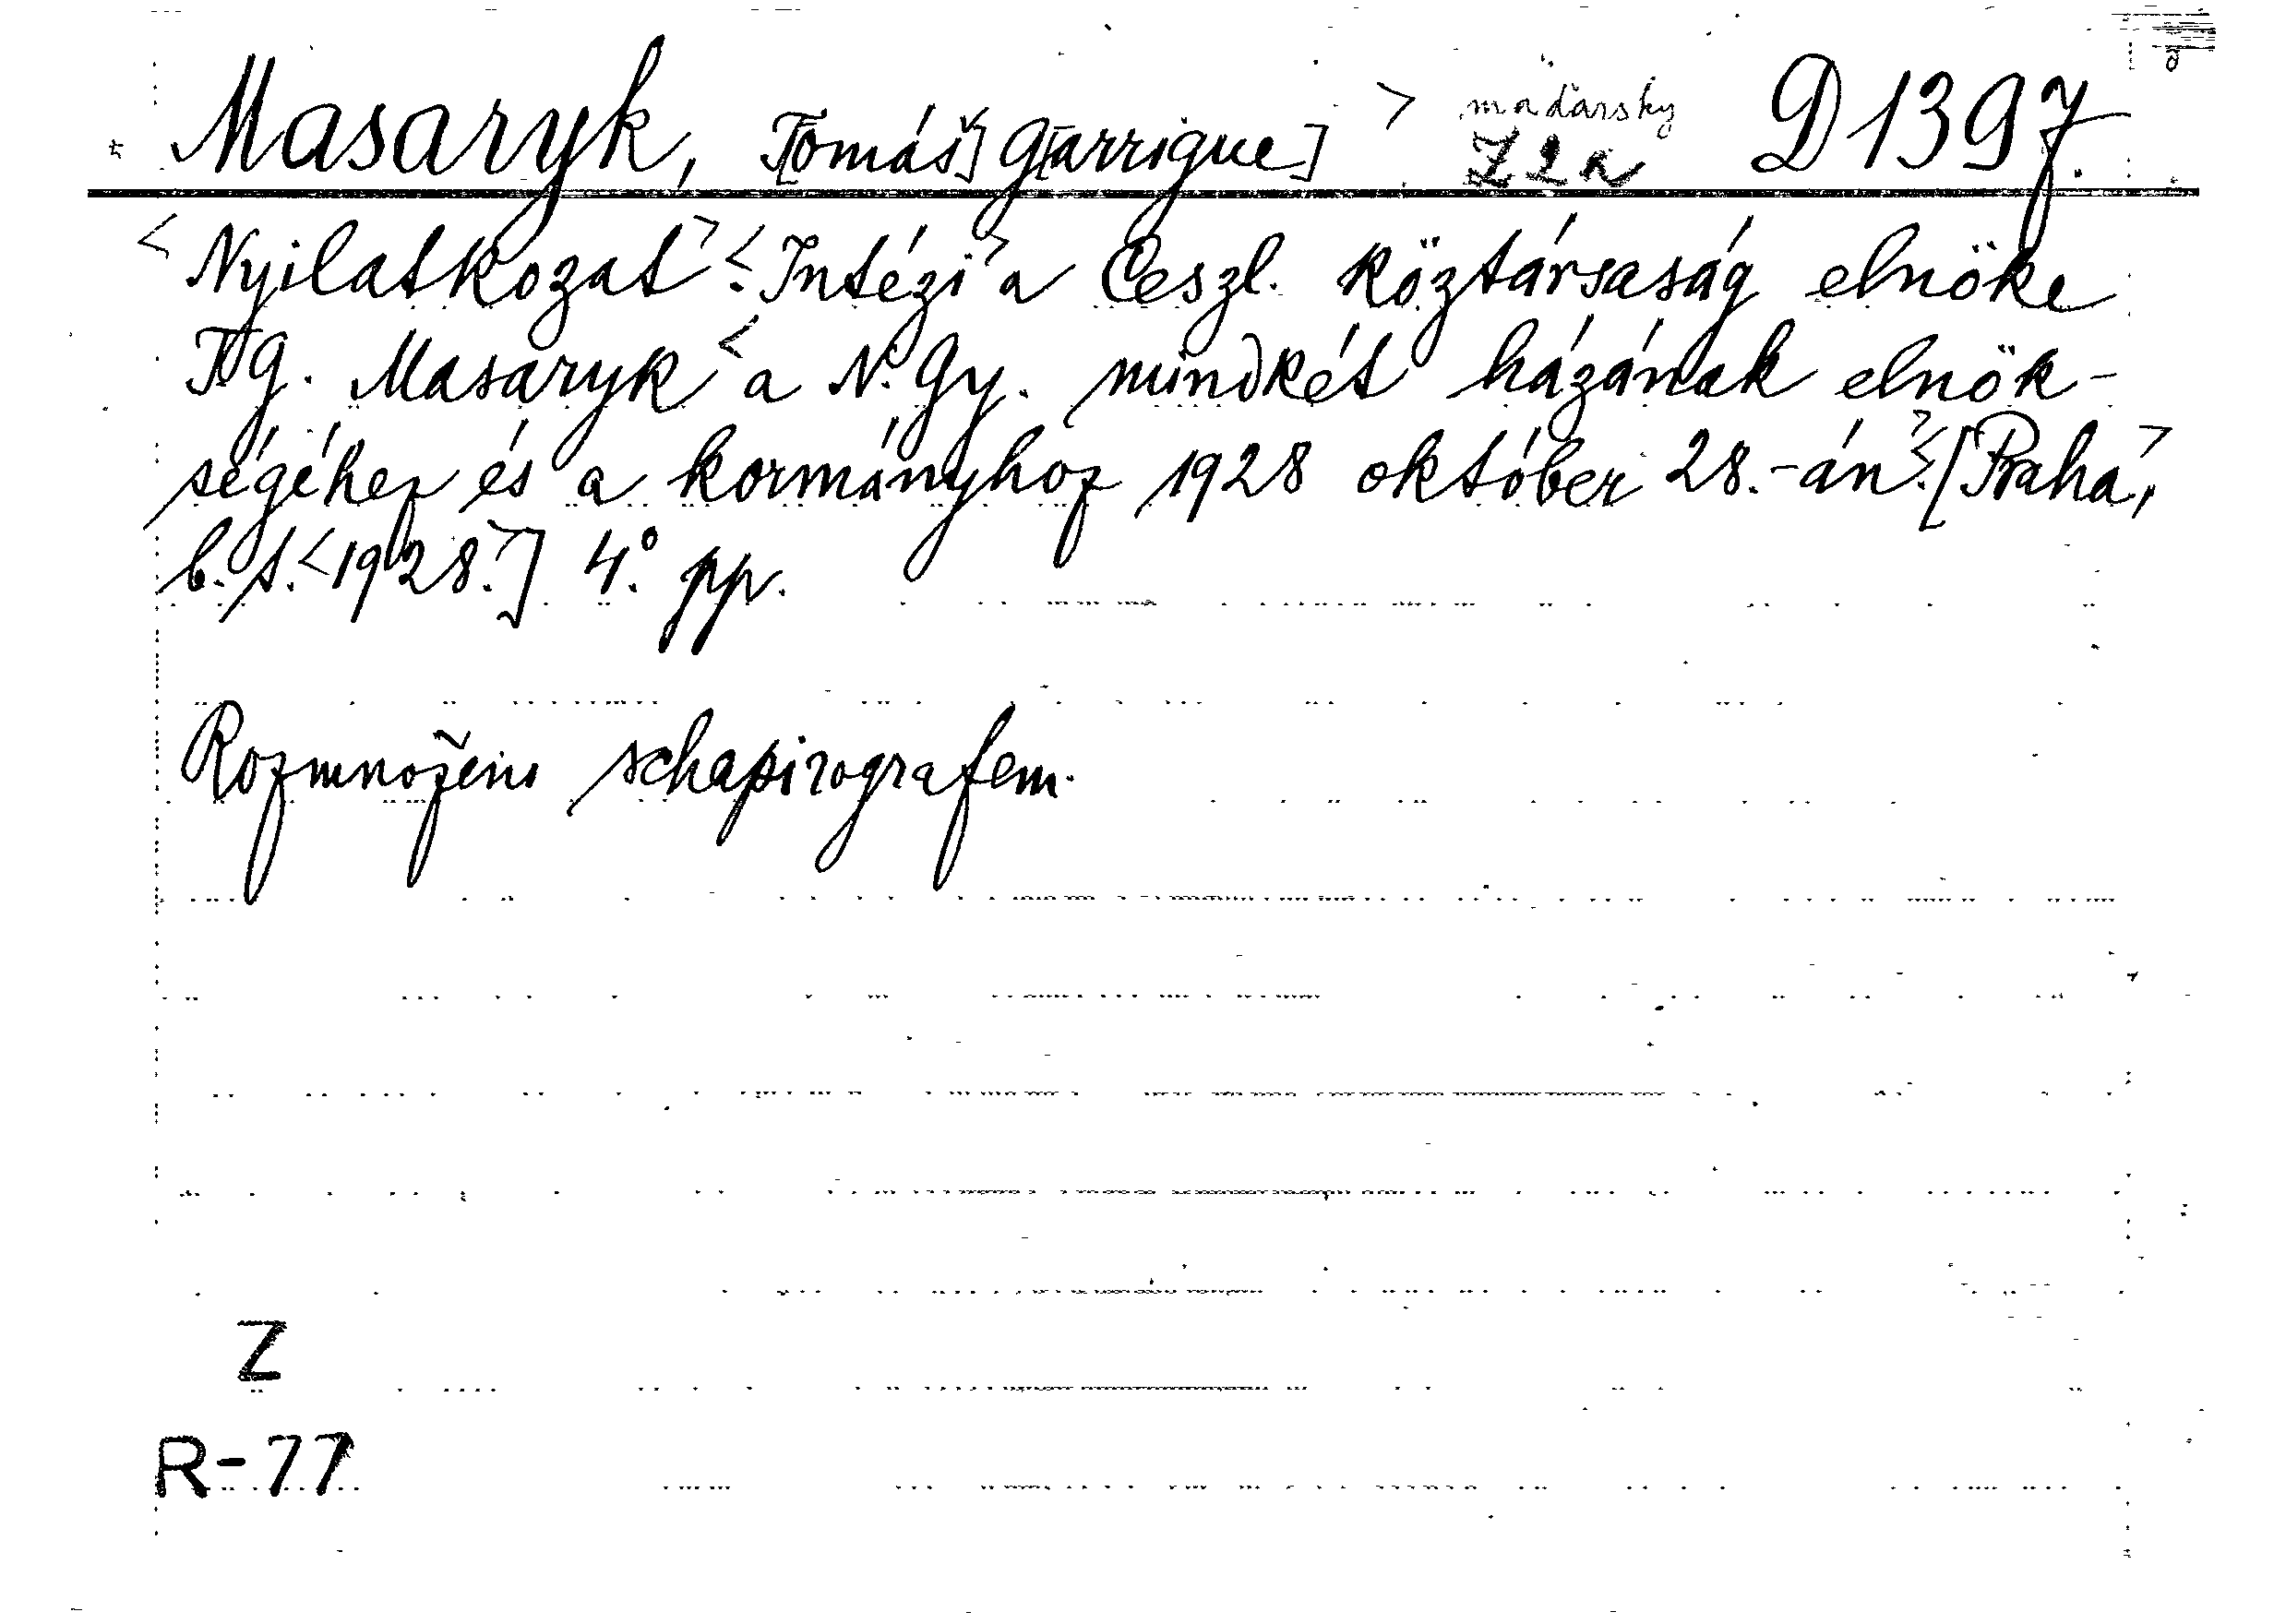 Masaryk, T[omáš] G[arrigue] > maďarsky D 1397.
Z 2 a
<Nyilatkozat>. <Intézi> a Ceszl. köztársaság elnöke
T.G. Masaryk <a N. Gy. mindkét házának elnök-
ségéhez és a kormányhoz 1928 október 28.-án>. <[Praha>,
b. t. <1928>.] 4° pp.
Rozmnoženo schapirografem.
Z
R-77